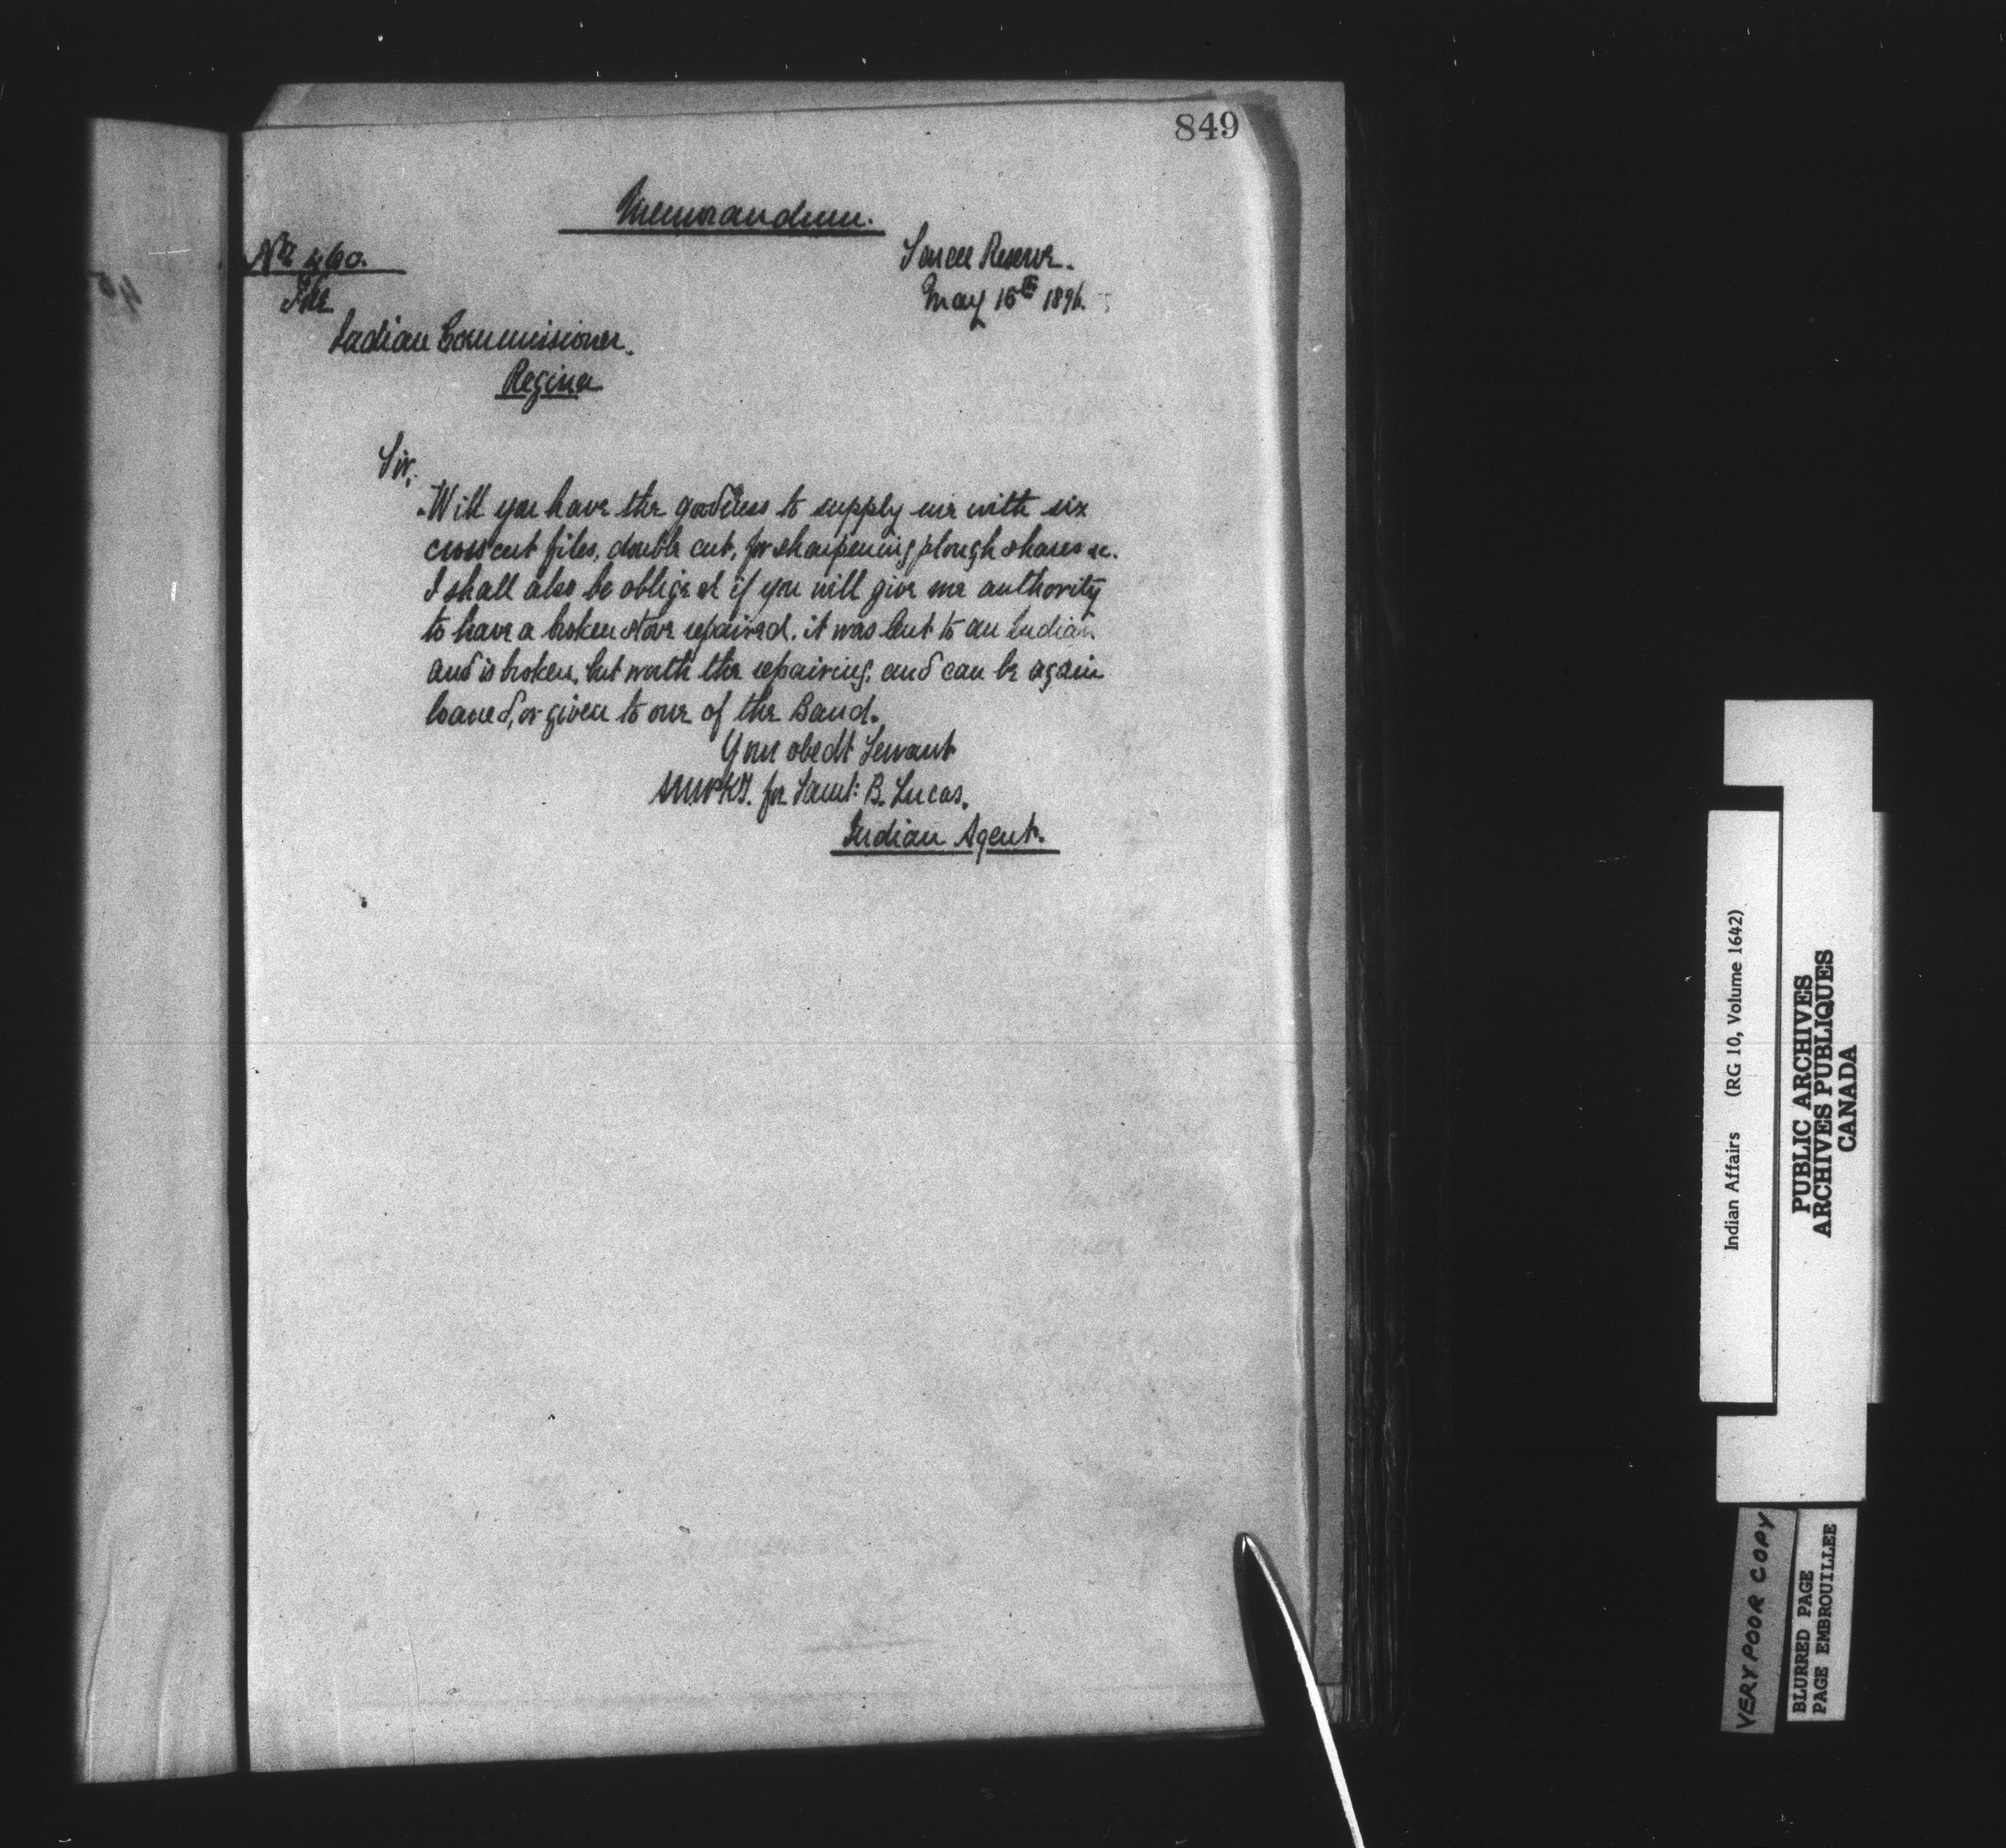 849
Memorandum.
No 460.
Sarcee Reserve.
May 15th 1896.
The
Indian Commissioner,
Regina
Sir,
Will you have the goodness to supply me with six
crosscut files, double cut, for sharpening plough shares &c.
I shall also be obliged if you will give me authority
to have a broken stove repaired. it was lent to an Indian
and is broken, but worth the repairing, and can be again
loaned, or given to one of the Band.
Your obedt Servant
for Saml: B. Lucas.
Indian Agent.
Indian Affairs (RG 10, Volume 1642)
PUBLIC ARCHIVES
ARCHIVES PUBLIQUES
CANADA
VERY POOR COPY
BLURRED PAGE
PAGE EMBROUILLEE